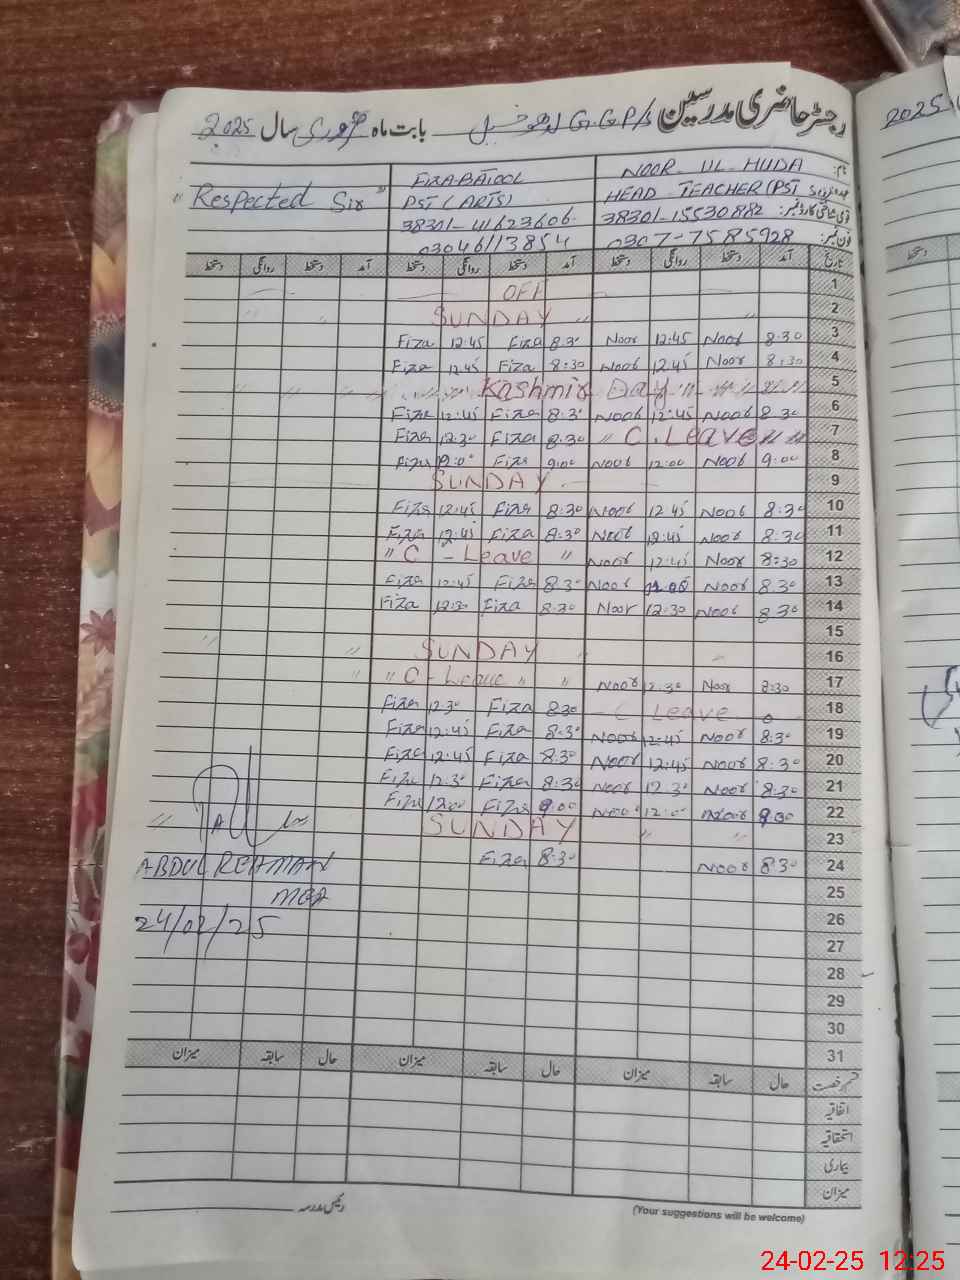 رجسٹر حاضری مدرسین G.G.P/s بابت ماہ فروری سال 2025
2025
نام: NOOR UL HUDA FIZA BATOOL
HEAD TEACHER (PST PST (ARTS) "Respected Sir"
قومی شناختی کارڈ نمبر: 38301-15530882 38301-41623606
فون نمبر: 0307-7585928 03046113854
تاریخ آمد دستخط روانگی دستخط آمد دستخط روانگی دستخط آمد دستخط روانگی دستخط
دستخط
1 OFF
2 SUNDAY
3 8:30 Noor 12:45 Noor 8:30 Fiza 12:45 Fiza
4 8:30 Noor 12:45 Noor 8:30 Fiza 12:45 Fiza
5 Kashmir Day
6 8:30 Noor 12:45 Noor 8:30 Fiza 12:45 Fiza
7 " C. Leave " " 8:30 Fiza 12:30 Fiza
8 9:00 Noor 12:00 Noor 9:00 Fiza Fiza
9 SUNDAY
10 8:30 Noor 12:45 Noor 8:30 Fiza 12:45 Fiza
11 8:30 Noor 12:45 Noor 8:30 Fiza 12:45 Fiza
12 8:30 Noor 12:45 Noor " C - Leave "
13 8:30 Noor Noor 8:30 Fiza 12:45 Fiza
14 8:30 Noor 12:30 Noor 8:30 Fiza 12:30 Fiza
15
16 SUNDAY
17 8:30 Noor 12:30 Noor " C - Leave " "
18 C Leave 8:30 Fiza 12:30 Fiza
19 8:30 Noor 12:45 Noor 8:30 Fiza 12:45 Fiza
20 8:30 Noor 12:45 Noor 8:30 Fiza 12:45 Fiza
21 8:30 Noor 12:30 Noor 8:30 Fiza 12:30 Fiza
22 Noor 12:00 Noor 9:00 Fiza 12:00 Fiza
23 SUNDAY
24 8:30 Noor 8:30 Fiza
ABDUL REHMAN
25
26
24/02/25
27
28
29
30
31
قسم رخصت حال سابقہ میزان حال سابقہ میزان حال سابقہ میزان
اتفاقیہ
استحقاقیہ
بیماری
میزان
رئیس مدرسہ
(Your suggestions will be welcome)
24-02-25 12:25